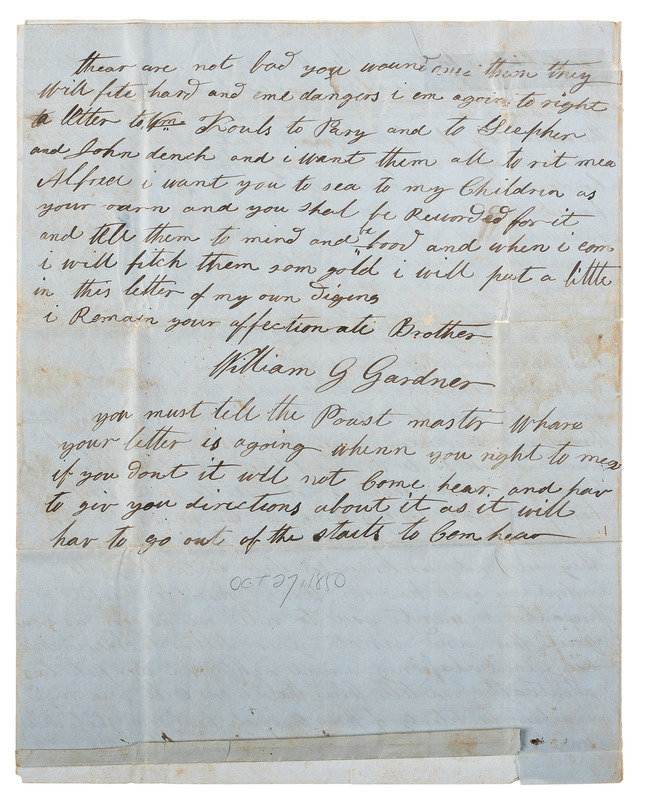 thear are not bad you wound them they
will fite hard and eme dangers i em agoin to right
a letter to Wm Fouls to Pary and to Geapher
and John dench and i want them all to rit mea
Alfred i want you to sea to my Children as
your oarn and you shal be Rewarded for it
and tell them to mind and be good and when i com
i will fitch them som gold i will put a little
in this letter of my own diging
i Remain your affectionate Brother
William G Gardner
you must tell the Poust master whare
your letter is agoing whenn you right to mea
if you dont it will not Come hear and
to giv you directions about it as it will
hav to go out of the staits to Com hear
Oct 27, 1850